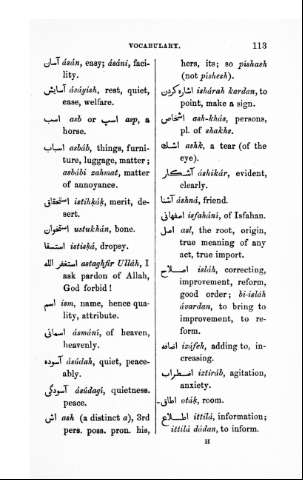 VOCABULARY. 113
آسان ásán, easy; ásání, faci-
lity.
آسایش ásáyish, rest, quiet,
ease, welfare.
اسب asb or اسپ asp, a
horse.
اسباب asbáb, things, furni-
ture, luggage, matter;
asbábi zahmat, matter
of annoyance.
استحقاق istihkák, merit, de-
sert.
استخوان ustukhán, bone.
استسقا istiská, dropsy.
استغفر الله astaghfir Ulláh, I
ask pardon of Allah,
God forbid!
اسم ism, name, hence qua-
lity, attribute.
آسمانی ásmání, of heaven,
heavenly.
آسوده ásúdah, quiet, peace-
ably.
آسودگی ásúdagí, quietness.
peace.
اش ash (a distinct a), 3rd
pers. poss. pron. his,
hers, its; so pishash
(not pishesh).
اشاره کردن ishárah kardan, to
point, make a sign.
اشخاص ash-khás, persons,
pl. of shakhs.
اشك ashk, a tear (of the
eye).
آشکار áshikár, evident,
clearly.
آشنا áshná, friend.
اصفهانی isfahání, of Isfahan.
اصل asl, the root, origin,
true meaning of any
act, true import.
اصلاح isláh, correcting,
improvement, reform,
good order; bi-isláh
ávardan, to bring to
improvement, to re-
form.
اضافه izáfeh, adding to, in-
creasing.
اضطراب iztiráb, agitation,
anxiety.
اطاق oták, room.
اطلاع ittilá, information;
ittilá dádan, to inform.
H